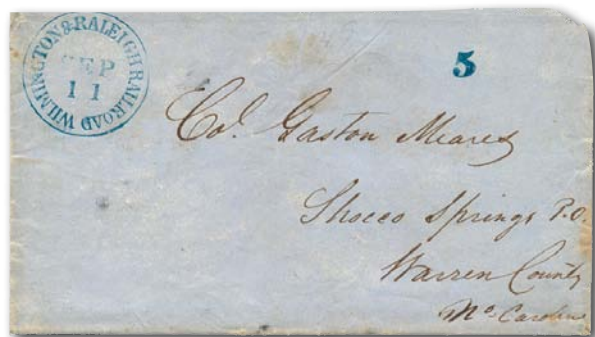 WILMINGTON & RALEIGH RAILROAD
SEP
11
5
Col. Gaston Meares
Shocco Springs P.O.
Warren County
No. Carolina